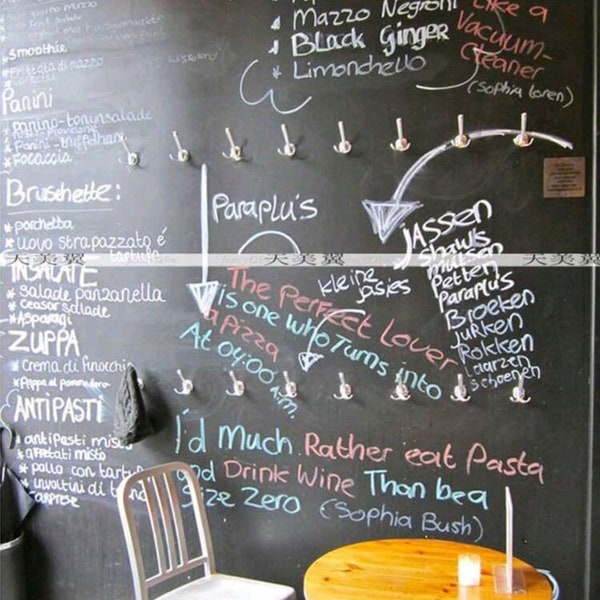 Smoothie
Panini
* panino-tonijnsalade
* Panini-truffelham
* Focaccia
Bruschette:
* porchetta
* uovo strapazzato é
tartufo
INSALATE
* Salade panzanella
* Ceasar salade
* Asparagi
ZUPPA
* Crema di finocchio
* Pappa al pomodoro
ANTIPASTI
* antipasti misto
* affettati misto
* pollo con tartufo
* involtini di
caprese
Mazzo Negroni
* Black Ginger
* Limonchello
Like a
Vacuum-
Cleaner
(Sophia Loren)
Paraplu's
kleine
jasjes
Jassen
Shawls
Mutsen
Petten
Paraplu's
Broeken
Jurken
Rokken
Laarzen
Schoenen
天美翼
天美翼
天美翼
The Perfect Lover
is one who Turns into
a pizza
At 04:00 A.m.
I'd Much Rather eat Pasta
and Drink Wine Than be a
Size Zero (Sophia Bush)